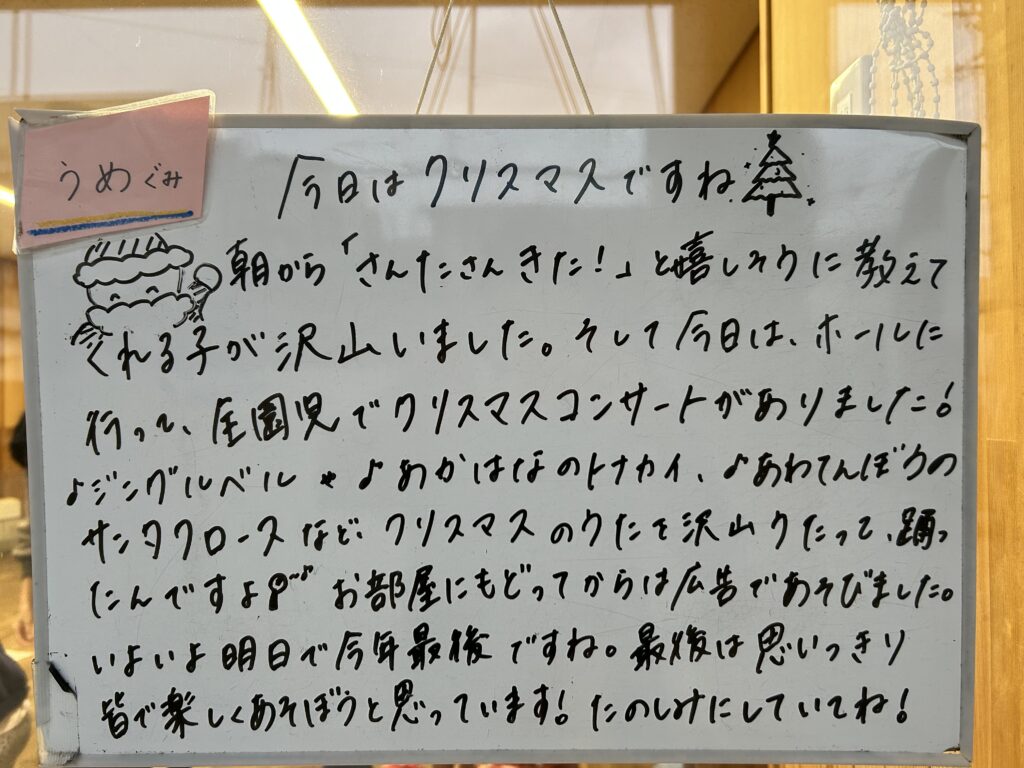 うめぐみ
今日はクリスマスですね
朝から「さんたさんきた!」と嬉しそうに教えて
くれる子が沢山いました。そして今日は、ホールに
行って、全園児でクリスマスコンサートがありました!
♪ジングルベルや♪あかはなのトナカイ、♪あわてんぼうの
サンタクロースなど、クリスマスのうたを沢山うたって、踊っ
たんですよ お部屋にもどってからは広告であそびました。
いよいよ明日で今年最後ですね。最後は思いっきり
皆で楽しくあそぼうと思っています!たのしみにしていてね!